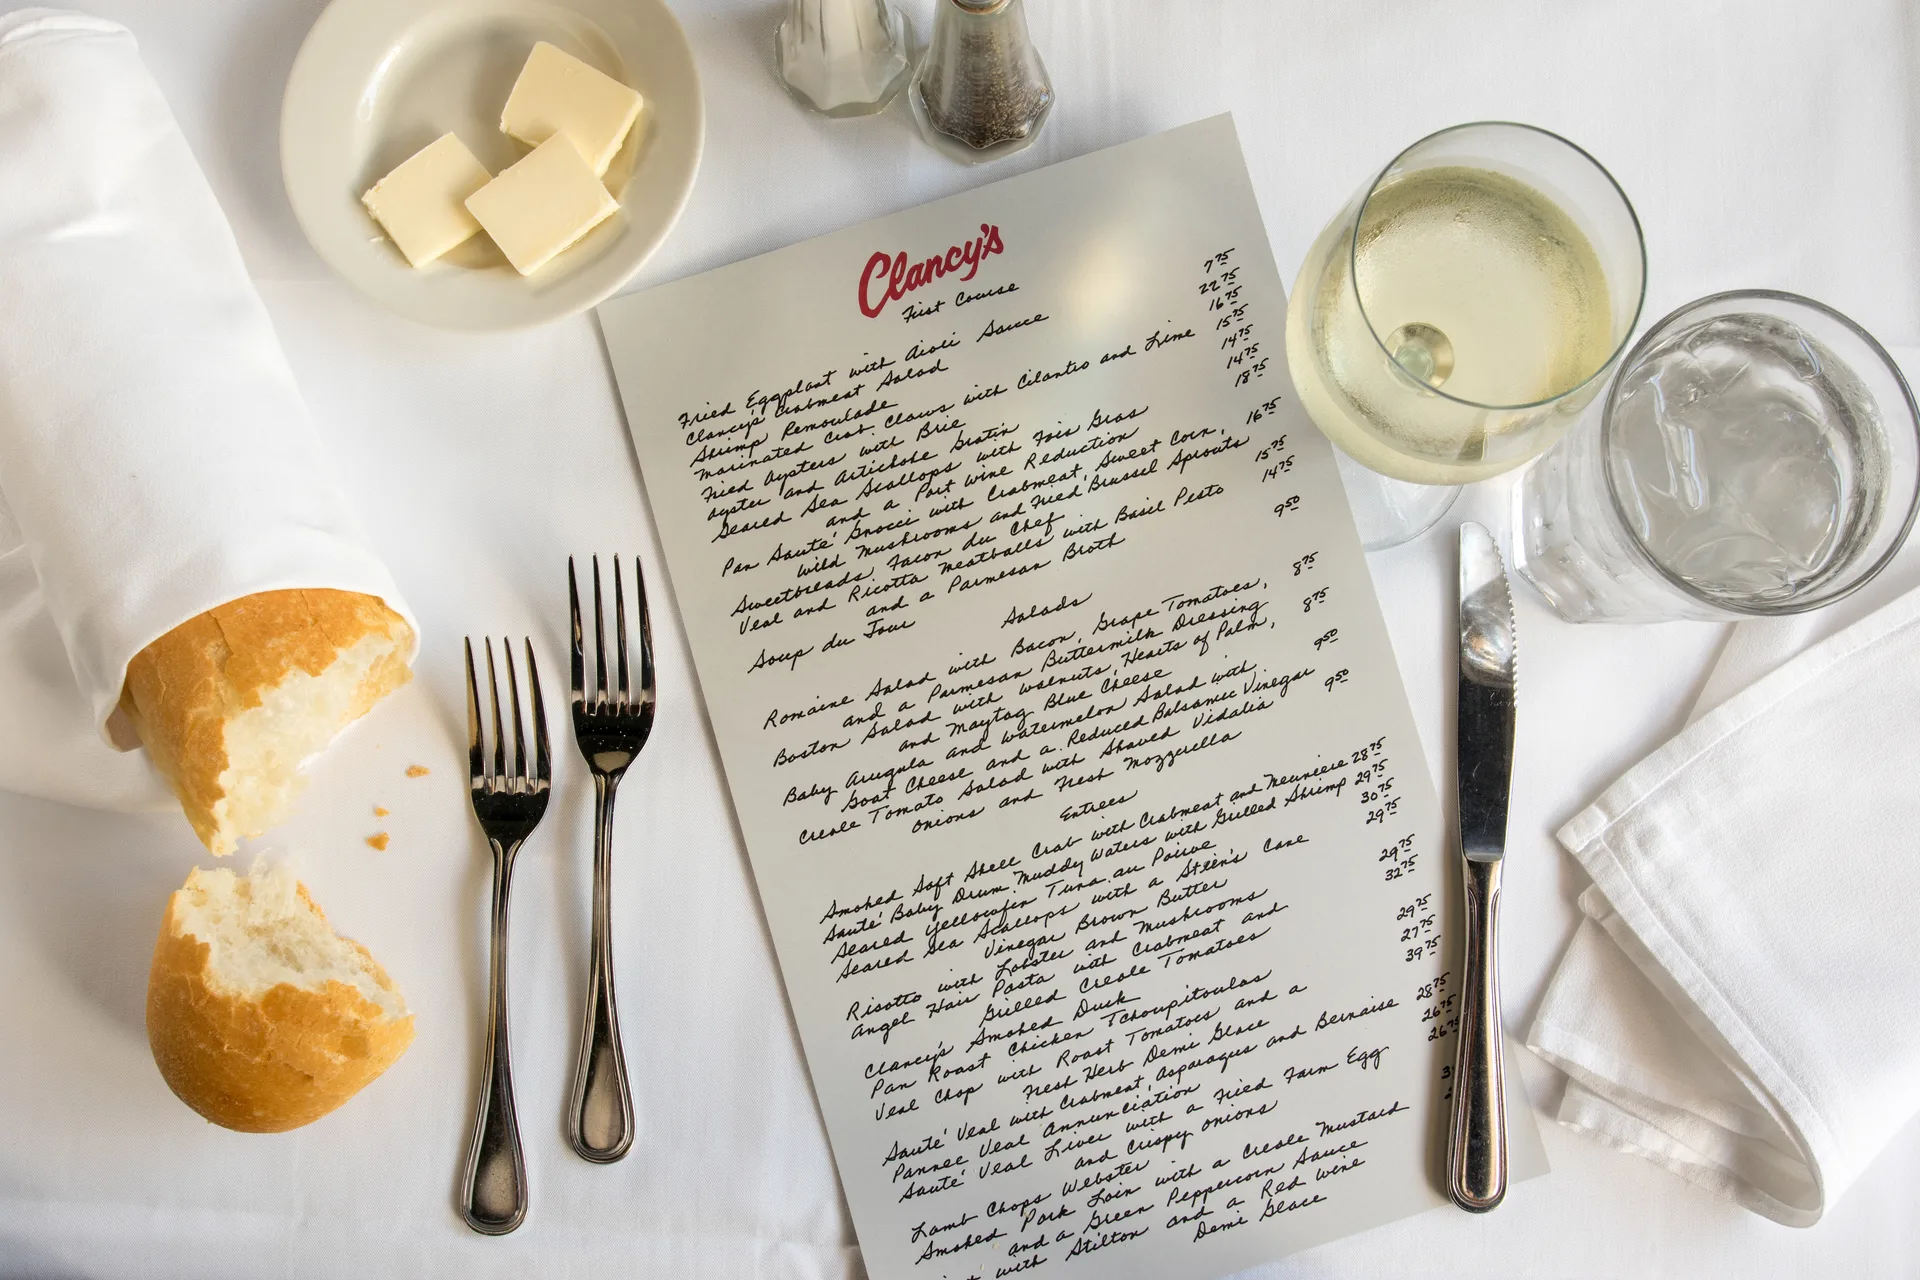 Clancy's
First Course
Fried Eggplant with Aioli Sauce 7 75
Clancy's Crabmeat Salad 22 75
Shrimp Remoulade 16 75
Marinated Crab Claws with Cilantro and Lime 15 75
Fried Oysters with Brie 14 75
Oyster and Artichoke Gratin 14 75
Seared Sea Scallops with Fois Gras 18 75
and a Port Wine Reduction
Pan Sauté Gnocci with Crabmeat, Sweet Corn, 16 75
Wild Mushrooms and Fried Brussel Sprouts
Sweetbreads, Facon du Chef 15 75
Veal and Ricotta Meatballs with Basil Pesto 14 75
and a Parmesan Broth
Soup du Jour 9 50
Salads
Romaine Salad with Bacon, Grape Tomatoes, 8 75
and a Parmesan Buttermilk Dressing
Boston Salad with Walnuts, Hearts of Palm, 8 75
and Maytag Blue Cheese
Baby Arugula and Watermelon Salad with 9 50
Goat Cheese and a Reduced Balsamic Vinegar
Creole Tomato Salad with Shaved Vidalia 9 50
Onions and Fresh Mozzerella
Entrees
Smoked Soft Shell Crab with Crabmeat and Meuniere 28 75
Sauté Baby Drum Muddy Waters with Grilled Shrimp 29 75
Seared Yellowfin Tuna au Poivre 30 75
Seared Sea Scallops with a Steen's Cane 29 75
Vinegar Brown Butter
Risotto with Lobster and Mushrooms 29 75
Angel Hair Pasta with Crabmeat and 32 75
Grilled Creole Tomatoes
Clancy's Smoked Duck 29 75
Pan Roast Chicken Tchoupitoulas 27 75
Veal Chop with Roast Tomatoes and a 39 75
Fresh Herb Demi Glace
Sauté Veal with Crabmeat, Asparagus and Bernaise 28 75
Pannee Veal Annunciation 26 75
Sauté Veal Liver with a Fried Farm Egg 26 75
and Crispy Onions
Lamb Chops Webster 3
Smoked Pork Loin with a Creole Mustard
and a Green Peppercorn Sauce
with Stilton and a Red Wine
Demi Glace